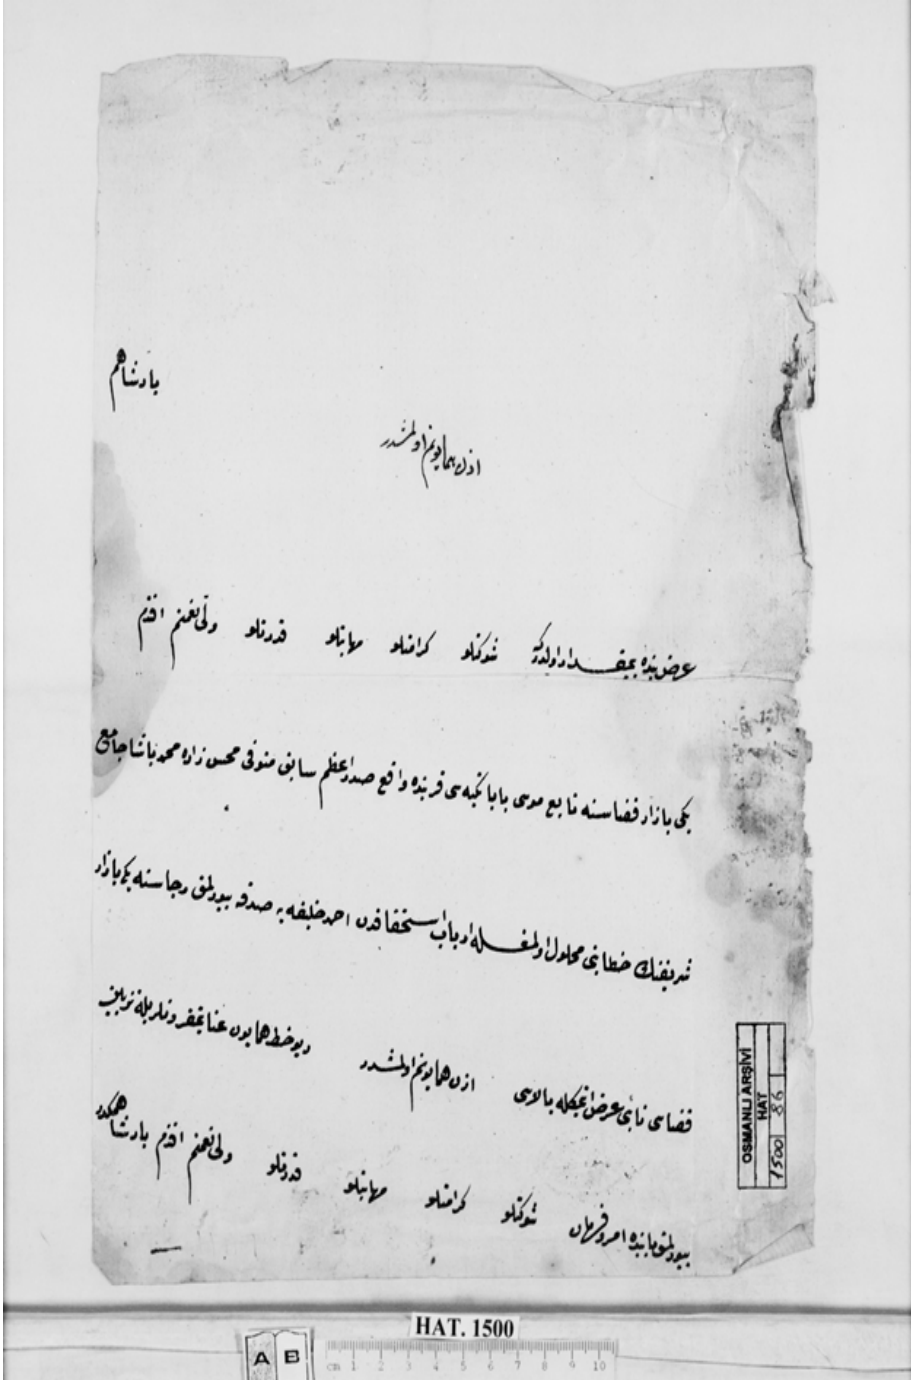 پادشاهم
اذن همایونم اولمشدر
عرض بنده بیمقدار اولدرکه شوکتلو کرامتلو مهابتلو قدرتلو ولی نعمتم افندم
یکی بازار قضاسنه تابع موسی بابا تکیه سی قربنده واقع صدر اعظم سابق متوفی محسن زاده محمد پاشا جامع
شریفنك خطابتی محلول اولمغله ارباب استحقاقدن احمد خلیفه یه صدقه بیورلمق رجاسنه یکی بازار
قضاسی نائبی عرض ایتمکله بالاسی اذن همایونم اولمشدر دیو خط همایون عنایتمقرونلریله تزیین
بیورلمق بابنده امر و فرمان شوکتلو کرامتلو مهابتلو قدرتلو ولی نعمتم افندم پادشاهمکدر
OSMANLI ARŞİVİ
HAT
1500 86
HAT. 1500
A B
cm 1 2 3 4 5 6 7 8 9 10